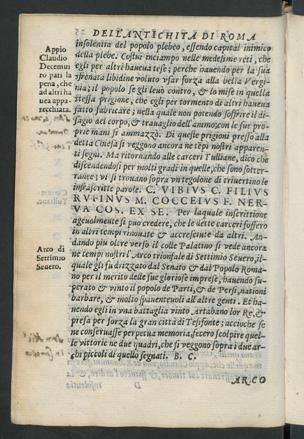 DELL'ANTICHITA DI ROMA
insolenita del popolo plebeo, essendo capital inimico
della plebe. Costui inciampo nelle medesime reti, che
egli per altri haueua tese; perche hauendo per la sua
sfrenata libidine voluto vsar forza alla bella Vergi-
nia; il popolo se gli leuò contro, & lo mise in quella
istessa prigione, che egli per tormento di altri haueua
fatto fabricare; nella quale non potendo soffrire il di-
sagio del corpo, & trauaglio dell'animo, con le sue pro-
prie mani si ammazzò. Di queste prigioni presso alla
detta Chiesa si veggono ancora ne tẽpi nostri apparen-
ti segni. Ma ritornando alle carceri Tulliane, dico che
discendendosi per molti gradi in quelle, che sono sotter-
ranee; vi si trouano sopra vn tegolone di triuertino le
infrascritte parole. C. VIBIVS C. FILIVS
RVFINVS M. COCCEIVS F. NER-
VA COS. EX SE. Per la quale inscrittione
ageuolmente si puo credere, che le dette carceri fossero
in altri tempi rinouate & accresciute da altri. An-
dando piu oltre verso il colle Palatino si vede ancora
ne tempi nostri l'Arco trionfale di Settimio Seuero, il-
quale gli fu drizzato dal Senato & dal Popolo Roma-
no per il merito delle sue gloriose imprese, hauendo su-
perato & vinto il popolo de Parti, & de Persi, nationi
barbare, & molto spauenteuoli all'altre genti. Et ha-
uendo egli in vna battaglia vinto Artabano lor Re, &
presa per forza la gran città di Tesifonte; accioche se
ne conseruasse perpetua memoria, fecero scolpire quel-
le vittorie ne due quadri, che si veggono sopra i due ar-
chi piccoli di quello segnati. B. C.
ARCO
Appio
Claudio
Decemui
ro pati la
pena, che
ad altri ha
uea appa-
recchiata.
Arco di
Settimio
Seuero.